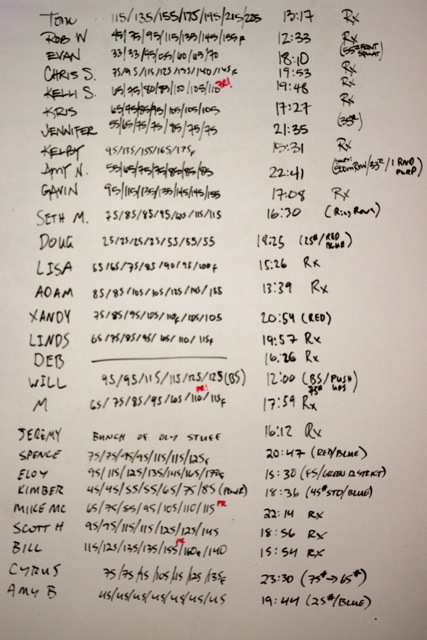 Tom 115/135/155/175/195/215/225 13:17 Rx
Rob W 45/75/95/115/135/145/155F 12:33 Rx
Evan 33/33/45/05/60/65/70 18:10 (55# Front Squat)
Chris S. 75/95/115/125/135/140/145F 19:53 Rx
Kelli S. 65/75/80/85/ 105/110 PR! 19:48 Rx
Kris 65/75/85/95/105/105/105 17:27 Rx
Jennifer 55/65/75/75/85/75/75 21:35 (35#)
Kelby 95/135/155/165/175F 15:31 Rx
Amy N. 55/65/75/75/85/85/85 22:41 (500m Row/ 1 RND
Gavin 95/115/125/135/145/145/155 17:08 Rx
Seth M. 75/85/85/95/ /115/115 16:30 (Ring Rows)
Doug 25/25/25/25/55/55/55 18:25 (25#/Red
Lisa 55/65/75/85/90/95/100F 15:26 Rx
Adam 85/85/105/105/125/ /135 13:39 Rx
Xandy 75/85/95/105/110F/105/105 20:54 (Red)
Linds 65/75/85/95/105/110/115F 19:57 Rx
Deb 16:26 Rx
Will 95/95/115/115/125/125 (BS) 12:00 (BS/Push ups
M 65/75/85/95/105/110 PR!/115F 17:59 Rx
Jeremy Bunch of Oly Stuff 16:12 Rx
Spence 75/75/95/95/115/115/125F 20:47 (Red/Blue)
Eloy 95/115/125/135/145/165/170F 15:30 (FS/Green
Kimber 45/45/55/55/65/75/85 (Power) 18:36 (45# STO/Blue)
Mike Mc 65/75/55/95/105/110/115 PR 22:14 Rx
Scott H 95/95/115/115/125/125/145 18:56 Rx
Bill 115/125/135/135/155 PR/160F/140 15:54 Rx
Cyrus 75/75/95/105/115/125/135F 23:30 (75#→65#)
Amy B 45/45/45/45/45/45/45 19:44 (25#/Blue)